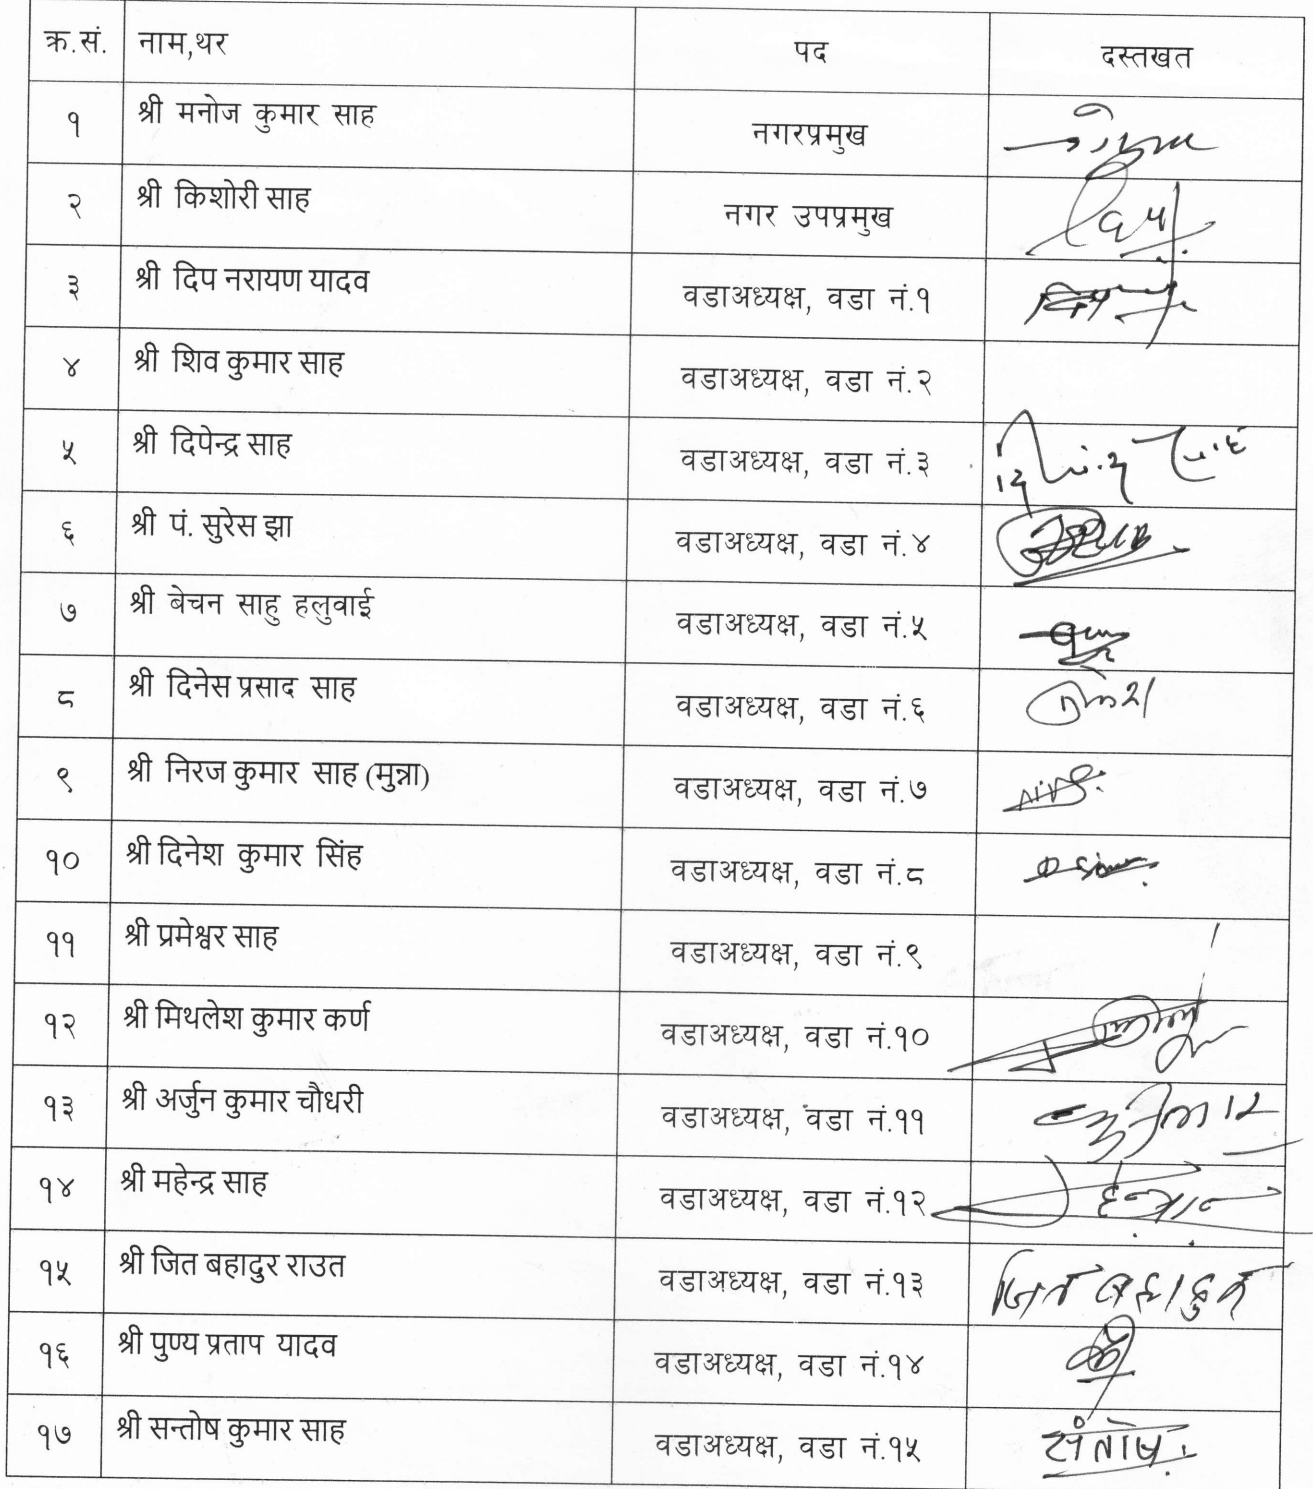 क्र.सं. नाम,थर पद दस्तखत
१ श्री मनोज कुमार साह नगरप्रमुख
२ श्री किशोरी साह नगर उपप्रमुख
३ श्री दिप नरायण यादव वडाअध्यक्ष, वडा नं.१
४ श्री शिव कुमार साह वडाअध्यक्ष, वडा नं.२
५ श्री दिपेन्द्र साह वडाअध्यक्ष, वडा नं.३
६ श्री पं. सुरेस झा वडाअध्यक्ष, वडा नं.४
७ श्री बेचन साहु हलुवाई वडाअध्यक्ष, वडा नं.५
८ श्री दिनेस प्रसाद साह वडाअध्यक्ष, वडा नं.६
९ श्री निरज कुमार साह (मुन्ना) वडाअध्यक्ष, वडा नं.७
१० श्री दिनेश कुमार सिंह वडाअध्यक्ष, वडा नं.८
११ श्री प्रमेश्वर साह वडाअध्यक्ष, वडा नं.९
१२ श्री मिथलेश कुमार कर्ण वडाअध्यक्ष, वडा नं.१०
१३ श्री अर्जुन कुमार चौधरी वडाअध्यक्ष, वडा नं.११
१४ श्री महेन्द्र साह वडाअध्यक्ष, वडा नं.१२
१५ श्री जित बहादुर राउत वडाअध्यक्ष, वडा नं.१३ जित बहादुर
१६ श्री पुण्य प्रताप यादव वडाअध्यक्ष, वडा नं.१४
१७ श्री सन्तोष कुमार साह वडाअध्यक्ष, वडा नं.१५ संतोष